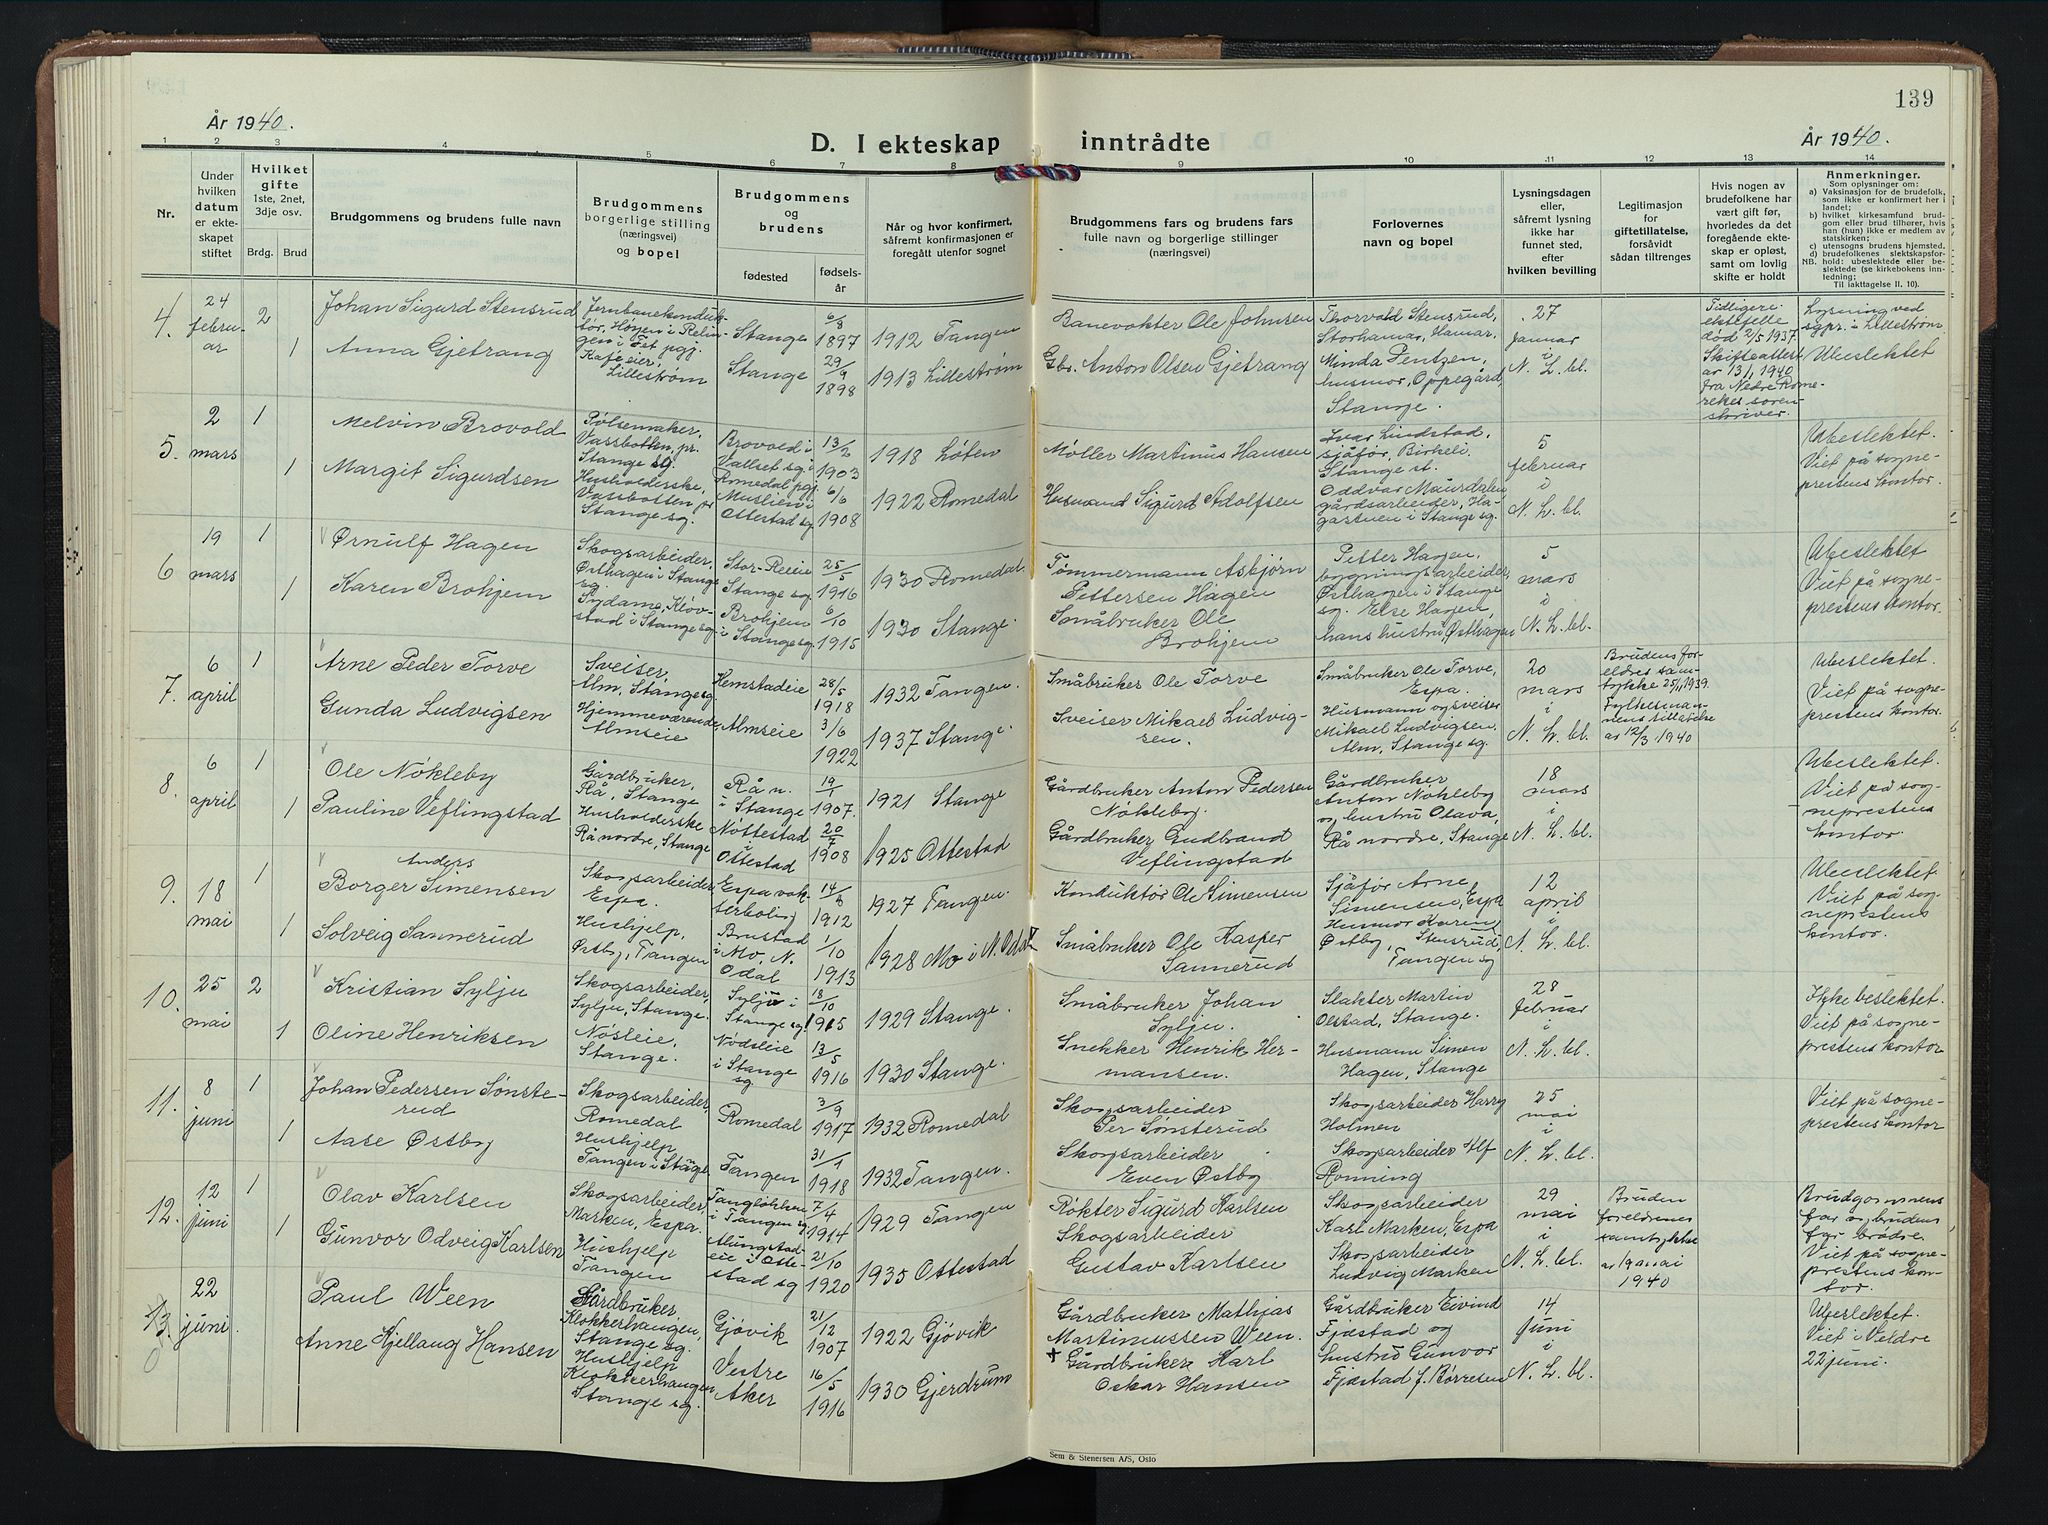 139
År 1940.
D. I ekteskap inntrådte
År 1940.
1 2 3 4 5 6 7 8 9 10 11 12 13 14
Nr.
Under
hvilken
datum
er ekte-
skapet
stiftet
Hvilket
gifte
1ste, 2net,
3dje osv.
Brdg. Brud
Brudgommens og brudens fulle navn
Brudgommens
borgerlige stilling
(næringsvei)
og bopel
Brudgommens
og
brudens
fødested
fødsels-
år
Når og hvor konfirmert,
såfremt konfirmasjonen er
foregått utenfor sognet
Brudgommens fars og brudens fars
fulle navn og borgerlige stillinger
(næringsvei)
Forlovernes
navn og bopel
Lysningsdagen
eller,
såfremt lysning
ikke har
funnet sted,
efter
hvilken bevilling
Legitimasjon
for
giftetillatelse,
forsåvidt
sådan tiltrenges
Hvis nogen av
brudefolkene har
vært gift før,
hvorledes da det
foregående ekte-
skap er opløst,
samt om lovlig
skifte er holdt
Anmerkninger.
Som oplysninger om:
a) Vaksinasjon for de brudefolk,
som ikke er konfirmert her i
landet;
b) hvilket kirkesamfund brud-
gom eller brud tilhører, hvis
han (hun) ikke er medlem av
statskirken;
c) utensogns brudens hjemsted.
d) brudefolkenes slektskapsfor-
NB. hold: ubeslektede eller be-
slektede (se kirkebokens inn-
ledning;
Til iakttagelse II. 10).
4.
24
februar
2
1
Johan Sigurd Stensrud
Anna Gjetrang
Jernbanekonduk-
tør, Høyen i Relin-
gen i Fet pgj.
Kafeeier,
Lillestrøm
Stange
6/8
1897
Stange
29/9
1898
1912 Tangen
1913 Lillestrøm
Banevokter Ole Johnsen
Gbr. Anton Olsen Gjetrang
Thorvald Stensrud,
Storhamar, Hamar.
Minda Pentzen,
husmor, Oppegård,
Stange.
27
januar
i
N. L. bl.
Tidligere
ektefelle
død 2/5 1937.
Skifteattest
av 13/1 1940
fra Nedre Rome-
rikes soren-
skriver.
Lysning ved
sgpr. i Lillestrøm
Ubeslektet
5.
2
mars
1
1
Melvin Brovold
Margit Sigurdsen
Pølsemaker,
Vassbotten, pr.
Stange sg.
Husholderske,
Vassbotten, pr
Stange sg.
Brovold i
Vallset sg. i
Romedal pgj.
13/2
1903
Muslien i
Ottestad sg.
6/6
1908
1918 Løten
1922 Romedal
Møller Martinus Hansen
Husmand Sigurd Adolfsen
Ivar Lindstad,
sjåfør, Birkeli,
Stange st.
Oddvar Maurdalen
gårdsarbeider, Ha-
gastuen i Stange sg.
5
februar
i
N. L. bl.
Ubeslektet.
Viet på sogne-
prestens kontor.
6
19
mars
1
1
Ørnulf Hagen
Karen Brohjem
Skogsarbeider,
Østhagen i Stange
sg.
Sydame, Kløv-
stad i Stange sg.
Stor-Reeie
Stange sg.
25/5
1916
Brohjem
i Stange sg.
6/10
1915
1930 Romedal
1930 Stange.
Tømmermann Asbjørn
Pettersen Hagen
Småbruker Ole
Brohjem
Petter Hagen,
bygningsarbeider,
Østhagen i Stange
sg. Else Hagen,
hans hustru, Østhagen
5
mars
i
N. L. bl.
Ubeslektet
Viet på sogne-
prestens kontor.
7.
6
april
1
Arne Peder Torve
Gunda Ludvigsen
Sveiser,
Alm, Stange sg
Hjemmeværende
Almseie
Hemstadeie
28/5
1918
Almseie
3/6
1922
1932 Tangen.
1937 Stange.
Småbruker Ole Torve
Sveiser Mikael Ludvig-
sen.
Småbruker Ole Torve,
Espa.
Husmann og sveiser
Mikael Ludvigsen,
Alm, Stange sg.
20
mars
i
N. L. bl.
Brudens for-
eldres sam-
tykke 25/11 1939.
Fylkesman-
nens tillatelse
av 12/3 1940
Ubeslektet.
Viet på sogne-
prestens kontor.
8.
6
april
1
1
Ole Nøkleby
Pauline Veflingstad
Gårdbruker,
Rå, Stange
Husholderske
Rå nordre, Stange
Rå n.
i Stange
19/1
1907.
Nøttestad
i
Ottestad
20/7
1908
1921 Stange
1925 Ottestad
Gårdbruker Anton Pedersen
Nøkleby.
Gårdbruker Gudbrand
Veflingstad
Gårdbruker
Anton Nøkleby
og hustru Olava,
Rå nordre, Stange
18
mars
i
N. L. bl.
Ubeslektet.
Viet på sog-
neprestens
kontor.
9.
18
mai
1
1
Anders
Borger Simensen
Solveig Sannerud
Skogsarbeider
Espa.
Hushjelp,
Østby, Tangen
Espa vok-
terbolig
14/8
1912
Brustad
i Mo, N.
Odal
1/10
1913
1927 Tangen.
1928 Mo i N. Odal
Konduktør Ole Simensen
Småbruker Ole Kasper
Sannerud
Sjåfør Arne
Simensen, Espa
Husmor Karen
Østby, Stensrud,
Tangen sg
12
april
i
N. L. bl.
Ubeslektet
Viet på sog-
neprestens
kontor.
10.
25
mai
2
1
Kristian Sylju
Oline Henriksen
Skogsarbeider,
Sylju, Stange.
Nøsleie,
Stange.
Sylju i
Stange sg.
18/10
1915
Nødsleie
i Stange
sg.
13/5
1916
1929 Stange.
1930 Stange.
Småbruker Johan
Sylju.
Snekker Henrik Her-
mansen.
Slakter Martin
Olstad, Stange.
Husmann Simen
Hagen, Stange
28
februar
i
N. L. bl.
Ikke beslektet.
Viet på sogne-
prestens kontor
11.
8
juni
1
1
Johan Pedersen Sønste-
rud
Aase Østby
Skogsarbeider,
Romedal
Hushjelp
Tangen i Stange
Romedal
3/9
1917
Tangen
31/1
1918
1932 Romedal
1932 Tangen.
Skogsarbeider
Per Sønsterud
Skogsarbeider
Even Østby
Skogsarbeider Harry
Holmen
Skogsarbeider Alf
Rønning
25
mai
i
N. L. bl.
Viet på sogne-
prestens kontor
12.
12
juni
1
1
Olav Karlsen
Gunvor Odveig Karlsen
Skogsarbeider,
Marken, Espa.
Hushjelp
Tangen
i Tangen sg
7/4
1914
Alungstad-
eie i Otte-
stad sg
21/10
1920
1929 Tangen
1935 Ottestad
Røkter Sigurd Karlsen
Skogsarbeider
Gustav Karlsen
Skogsarbeider
Karl Marken, Espa
Skogsarbeider
Ludvig Marken
29
mai
i
N. L. bl.
Bruden
foreldrenes
samtykke
av 19 mai
1940
Brudgommens
far og brudens
far brødre.
Viet på sogne-
prestens kon-
tor.
13.
22
juni.
Paul Ween
Anne Kjellaug Hansen
Gårdbruker
Klokkerhaugen,
Stange sg.
Hushjelp
Klokkerhaugen
Stange sg.
Gjøvik
21/12
1907
Vestre
Aker
16/5
1916
1922 Gjøvik
1930 Gjerdrum
Gårdbruker Mathias
Martinussen Ween.
+ Gårdbruker Karl
Oskar Hansen
Gårdbruker Eivind
Fjæstad og
hustru Gunvor
Fjæstad f. Børresen
14
juni
i
N. L. bl.
Ubeslektet.
Viet i Veldre
22 juni.
Sem & Stenersen A/S, Oslo